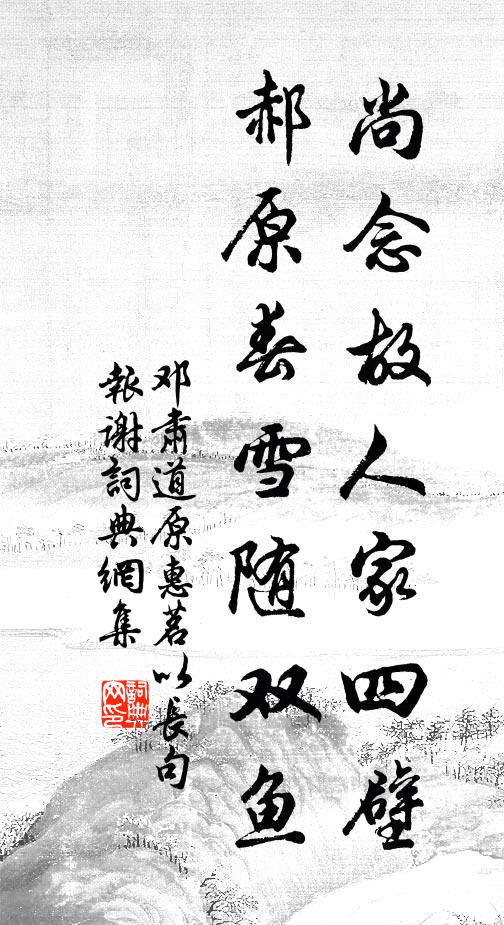 尚念故人家四壁
郝原春雪随双鱼
邓肃道原惠茗以长句
报谢词典網集
詞典
网印